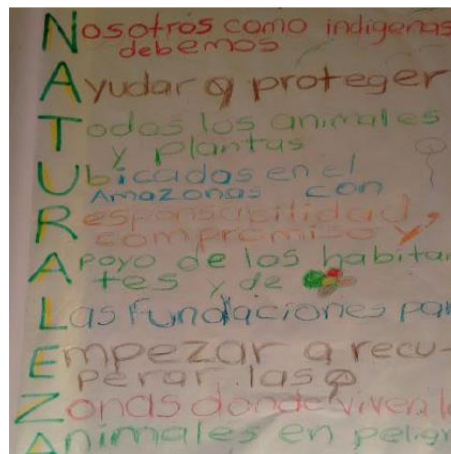 Nosotros como indigenas
debemos
Ayudar a proteger
Todos los animales
y plantas
Ubicados en el
Amazonas con
Responsabilidad,
compromiso y
Apoyo de los habitan
tes y de
Las Fundaciones par
Empezar a recu-
perar las
Zonas donde viven l
Animales en pelig